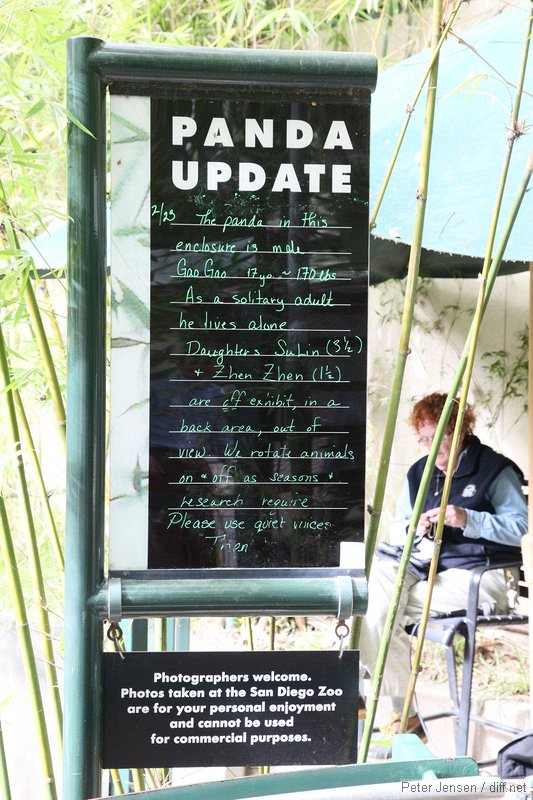 PANDA
UPDATE
2/23 The panda in this
enclosure is male
Gao Gao 17 yo. ~ 170 lbs
As a solitary adult
he lives alone.
Daughters SuLin (3 1/2)
+ Zhen Zhen (1 1/2)
are off exhibit, in a
back area, out of
view. We rotate animals
on + off as seasons +
research require
Please use quiet voices.
Photographers welcome.
Photos taken at the San Diego Zoo
are for your personal enjoyment
and cannot be used
for commercial purposes.
Peter Jensen / diff.net